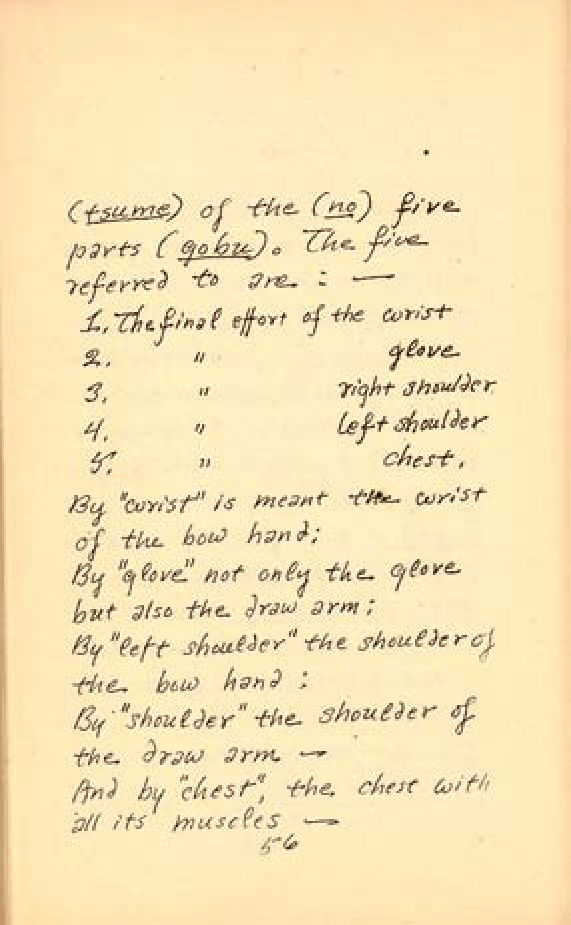 (tsume) of the (no) five
parts (gobu). The five
referred to are : —
1. The final effort of the wrist
2. " glove
3. " right shoulder
4. " left shoulder
5. " chest.
By "wrist" is meant the wrist
of the bow hand;
By "glove" not only the glove
but also the draw arm;
By "left shoulder" the shoulder of
the bow hand :
By "shoulder" the shoulder of
the draw arm —
And by "chest", the chest with
all its muscles —
56